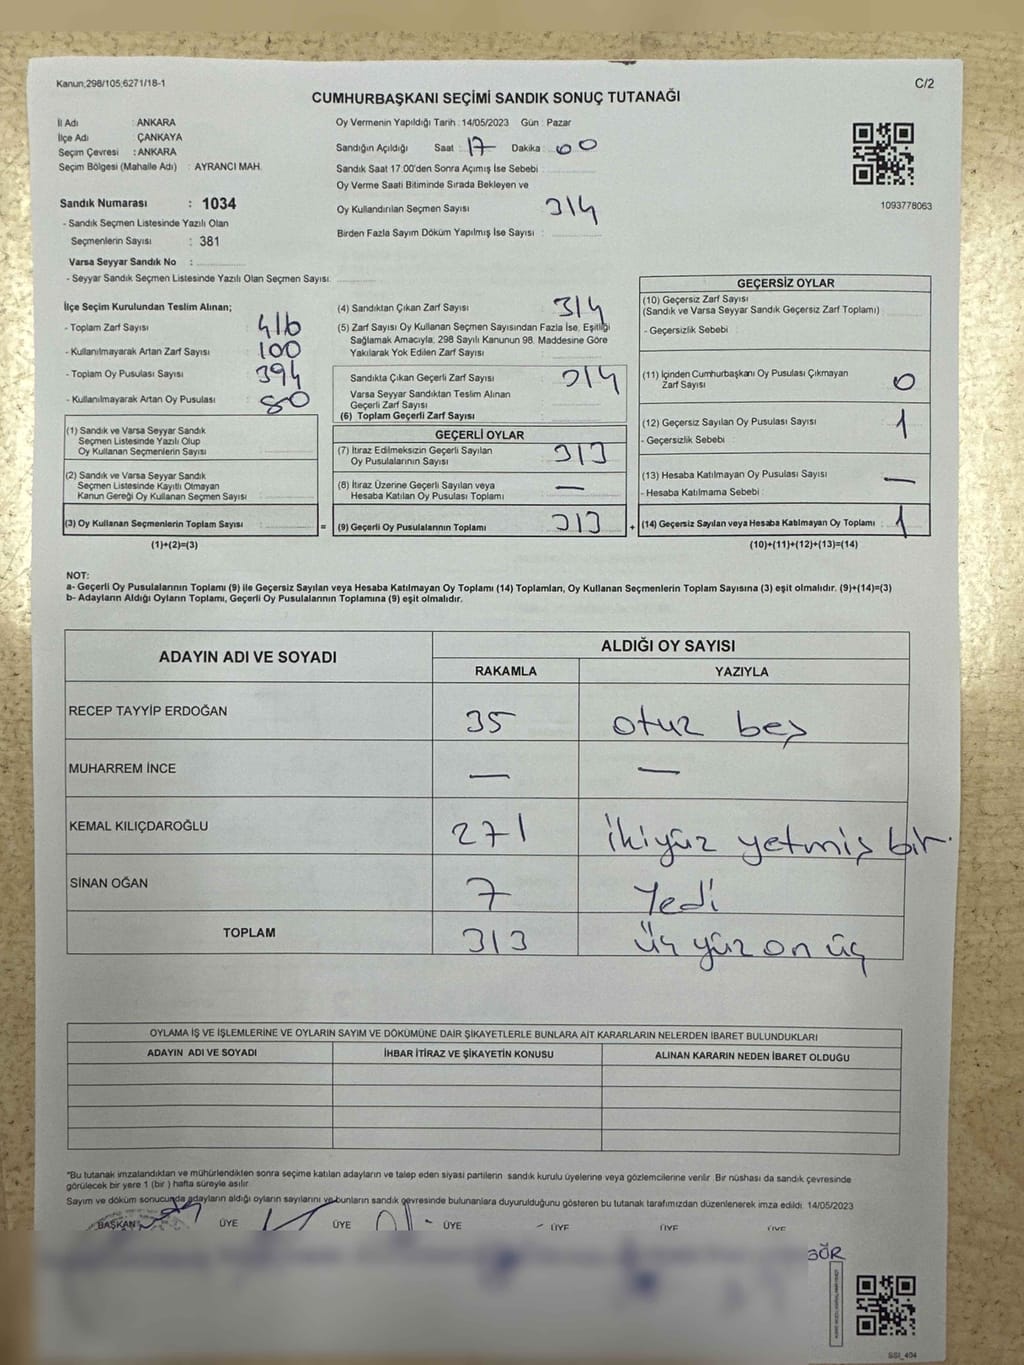 Kanun,298/105;6271/18-1
C/2
CUMHURBAŞKANI SEÇİMİ SANDIK SONUÇ TUTANAĞI
İl Adı : ANKARA
İlçe Adı : ÇANKAYA
Seçim Çevresi : ANKARA
Seçim Bölgesi (Mahalle Adı) : AYRANCI MAH.
Sandık Numarası : 1034
- Sandık Seçmen Listesinde Yazılı Olan
Seçmenlerin Sayısı : 381
Varsa Seyyar Sandık No :
- Seyyar Sandık Seçmen Listesinde Yazılı Olan Seçmen Sayısı:
Oy Vermenin Yapıldığı Tarih : 14/05/2023 Gün : Pazar
Sandığın Açıldığı Saat : 17 Dakika : 00
Sandık Saat 17.00'den Sonra Açımış İse Sebebi :
Oy Verme Saati Bitiminde Sırada Bekleyen ve
Oy Kullandırılan Seçmen Sayısı 314
Birden Fazla Sayım Döküm Yapılmış İse Sayısı :
1093778063
İlçe Seçim Kurulundan Teslim Alınan;
- Toplam Zarf Sayısı : 416
- Kullanılmayarak Artan Zarf Sayısı : 100
- Toplam Oy Pusulası Sayısı : 394
- Kullanılmayarak Artan Oy Pusulası : 80
(1) Sandık ve Varsa Seyyar Sandık
Seçmen Listesinde Yazılı Olup
Oy Kullanan Seçmenlerin Sayısı :
(2) Sandık ve Varsa Seyyar Sandık
Seçmen Listesinde Kayıtlı Olmayan
Kanun Gereği Oy Kullanan Seçmen Sayısı :
(3) Oy Kullanan Seçmenlerin Toplam Sayısı : =
(1)+(2)=(3)
(4) Sandıktan Çıkan Zarf Sayısı : 314
(5) Zarf Sayısı Oy Kullanan Seçmen Sayısından Fazla İse, Eşitliği
Sağlamak Amacıyla, 298 Sayılı Kanunun 98. Maddesine Göre
Yakılarak Yok Edilen Zarf Sayısı :
Sandıkta Çıkan Geçerli Zarf Sayısı : 314
Varsa Seyyar Sandıktan Teslim Alınan
Geçerli Zarf Sayısı :
(6) Toplam Geçerli Zarf Sayısı :
GEÇERLİ OYLAR
(7) İtiraz Edilmeksizin Geçerli Sayılan
Oy Pusulalarının Sayısı : 313
(8) İtiraz Üzerine Geçerli Sayılan veya
Hesaba Katılan Oy Pusulası Toplamı : —
(9) Geçerli Oy Pusulalarının Toplamı : 313 +
GEÇERSİZ OYLAR
(10) Geçersiz Zarf Sayısı
(Sandık ve Varsa Seyyar Sandık Geçersiz Zarf Toplamı) :
- Geçersizlik Sebebi :
(11) İçinden Cumhurbaşkanı Oy Pusulası Çıkmayan
Zarf Sayısı : 0
(12) Geçersiz Sayılan Oy Pusulası Sayısı : 1
- Geçersizlik Sebebi :
(13) Hesaba Katılmayan Oy Pusulası Sayısı : —
- Hesaba Katılmama Sebebi :
(14) Geçersiz Sayılan veya Hesaba Katılmayan Oy Toplamı : 1
(10)+(11)+(12)+(13)=(14)
NOT:
a- Geçerli Oy Pusulalarının Toplamı (9) ile Geçersiz Sayılan veya Hesaba Katılmayan Oy Toplamı (14) Toplamları, Oy Kullanan Seçmenlerin Toplam Sayısına (3) eşit olmalıdır. (9)+(14)=(3)
b- Adayların Aldığı Oyların Toplamı, Geçerli Oy Pusulalarının Toplamına (9) eşit olmalıdır.
ADAYIN ADI VE SOYADI
ALDIĞI OY SAYISI
RAKAMLA YAZIYLA
RECEP TAYYİP ERDOĞAN 35 otuz beş
MUHARREM İNCE — —
KEMAL KILIÇDAROĞLU 271 ikiyüz yetmiş bir
SİNAN OĞAN 7 Yedi
TOPLAM 313 Üç yüz on üç
OYLAMA İŞ VE İŞLEMLERİNE VE OYLARIN SAYIM VE DÖKÜMÜNE DAİR ŞİKAYETLERLE BUNLARA AİT KARARLARIN NELERDEN İBARET BULUNDUKLARI
ADAYIN ADI VE SOYADI İHBAR İTİRAZ VE ŞİKAYETİN KONUSU ALINAN KARARIN NEDEN İBARET OLDUĞU
*Bu tutanak imzalandıktan ve mühürlendikten sonra seçime katılan adayların ve talep eden siyasi partilerin sandık kurulu üyelerine veya gözlemcilerine verilir. Bir nüshası da sandık çevresinde
görülecek bir yere 1 (bir ) hafta süreyle asılır.
Sayım ve döküm sonucunda adayların aldığı oyların sayılarını ve bunların sandık çevresinde bulunanlara duyurulduğunu gösteren bu tutanak tarafımızdan düzenlenerek imza edildi. 14/05/2023
BAŞKAN ÜYE ÜYE ÜYE ÜYE ÜYE ÜYE
GÖR
SSI_404